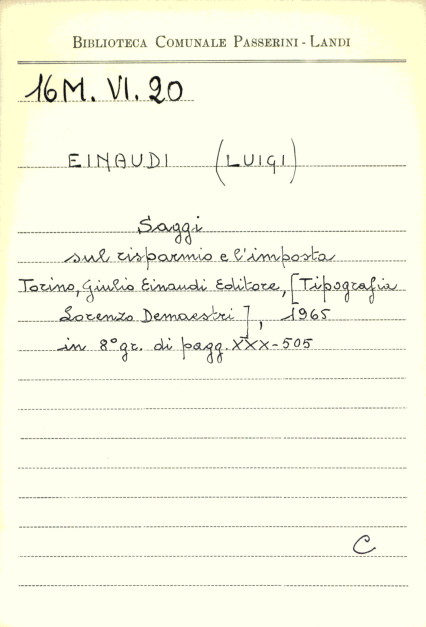 BIBLIOTECA COMUNALE PASSERINI - LANDI
16M. VI. 20
EINAUDI (LUIGI)
Saggi
sul risparmio e l'imposta
Torino, Giulio Einaudi Editore, [Tipografia
Lorenzo Demaestri], 1965
in 8° gr. di pagg. XXX-505
C